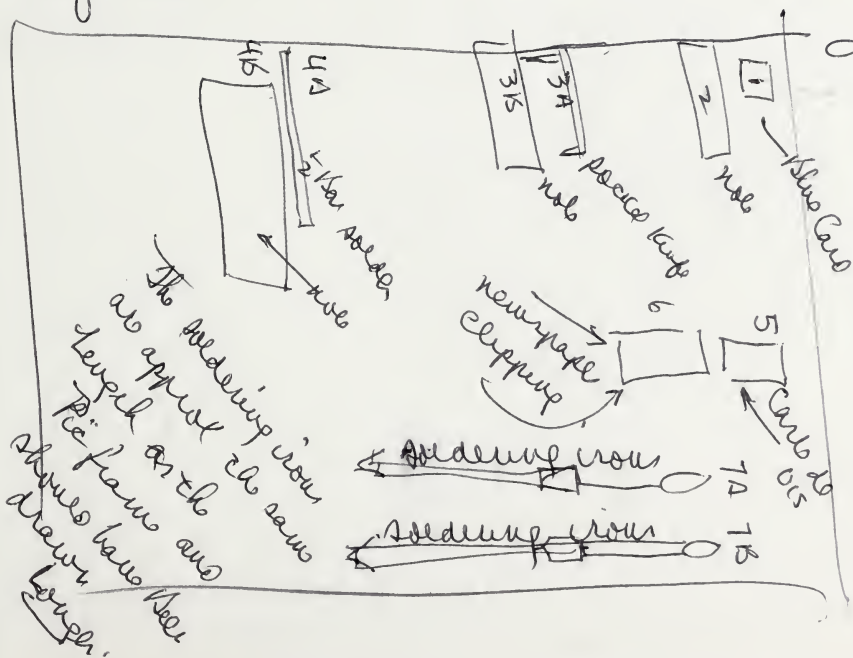 1
Blue Card
2
note
3A
pocket knife
3B
note
4A
Bar solder
4B
note
5
Carte de
vis
6
newspape
clipping
7A
soldering irons
7B
soldering irons
The soldering irons
are approx the same
length as the
Pic frame and
should have been
drawn
Longer.